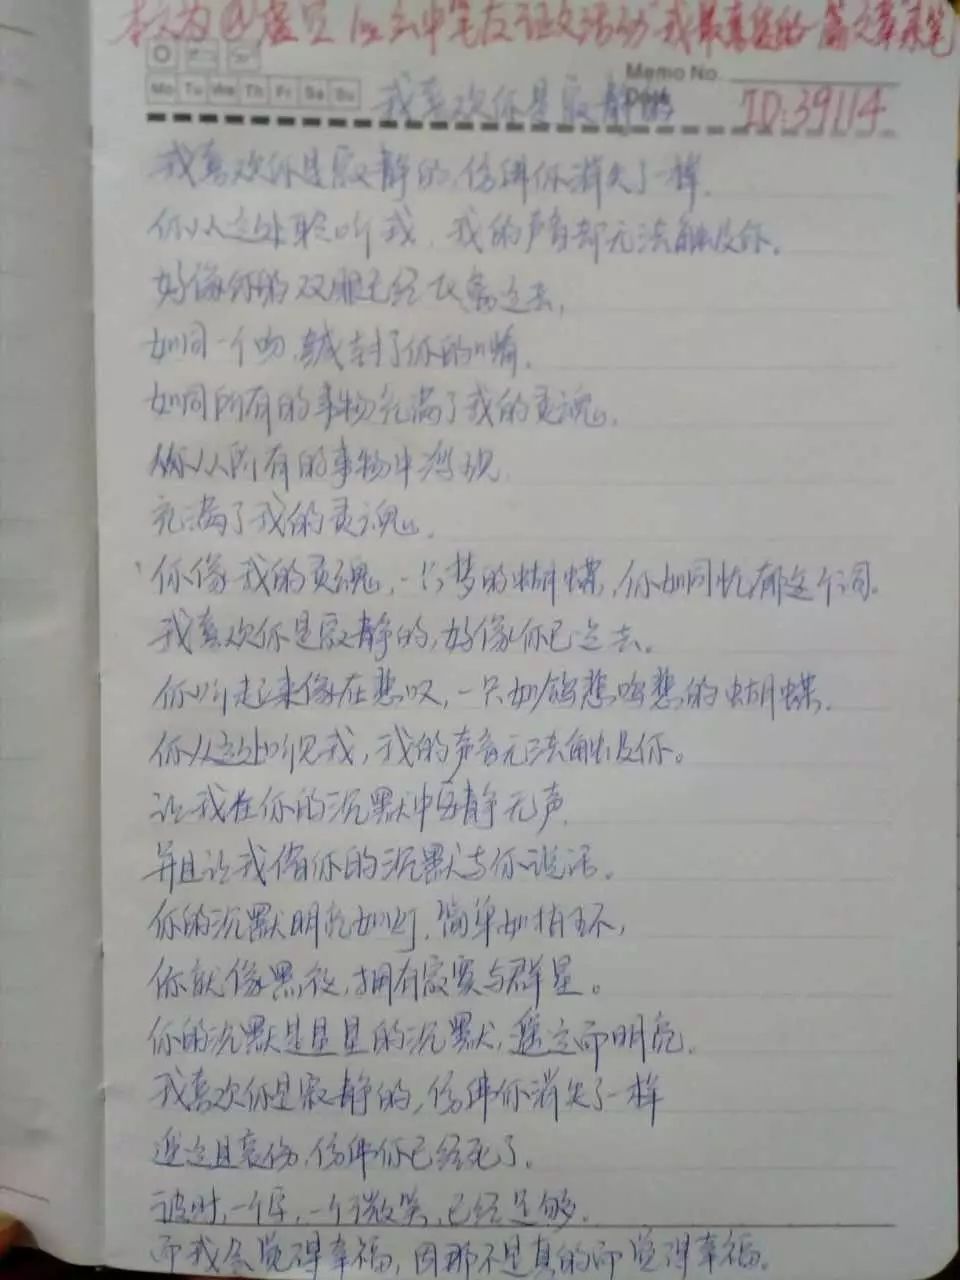 本文为@虚空 las云中笔友证文活动"我最喜欢的一篇文章亲笔
Memo No.
Mo Tu We Th Fr Sa Su
Date
我喜欢你是寂静的
ID:39114
我喜欢你是寂静的,仿佛你消失了一样.
你从远处聆听我,我的声音却无法触及你.
好像你的双眼已经飞离远去,
如同一个吻,封了你的嘴.
如同所有的事物充满了我的灵魂.
你从所有的事物中浮现.
充满了我的灵魂.
你像我的灵魂,一只梦的蝴蝶,你如同忧郁这个词.
我喜欢你是寂静的,好像你已远去.
你听起来像在悲叹,一只如鸽悲鸣的蝴蝶.
你从远处听见我,我的声音无法触及你。
让我在你的沉默中安静无声.
并且让我借你的沉默与你说话.
你的沉默明亮如灯,简单如指环,
你就像黑夜,拥有寂寞与群星。
你的沉默是星星的沉默,遥远而明亮.
我喜欢你是寂静的,仿佛你消失了一样
遥远且哀伤,仿佛你已经死了.
彼时,一个字,一个微笑,已经足够.
而我会觉得幸福,因那不是真的而觉得幸福.